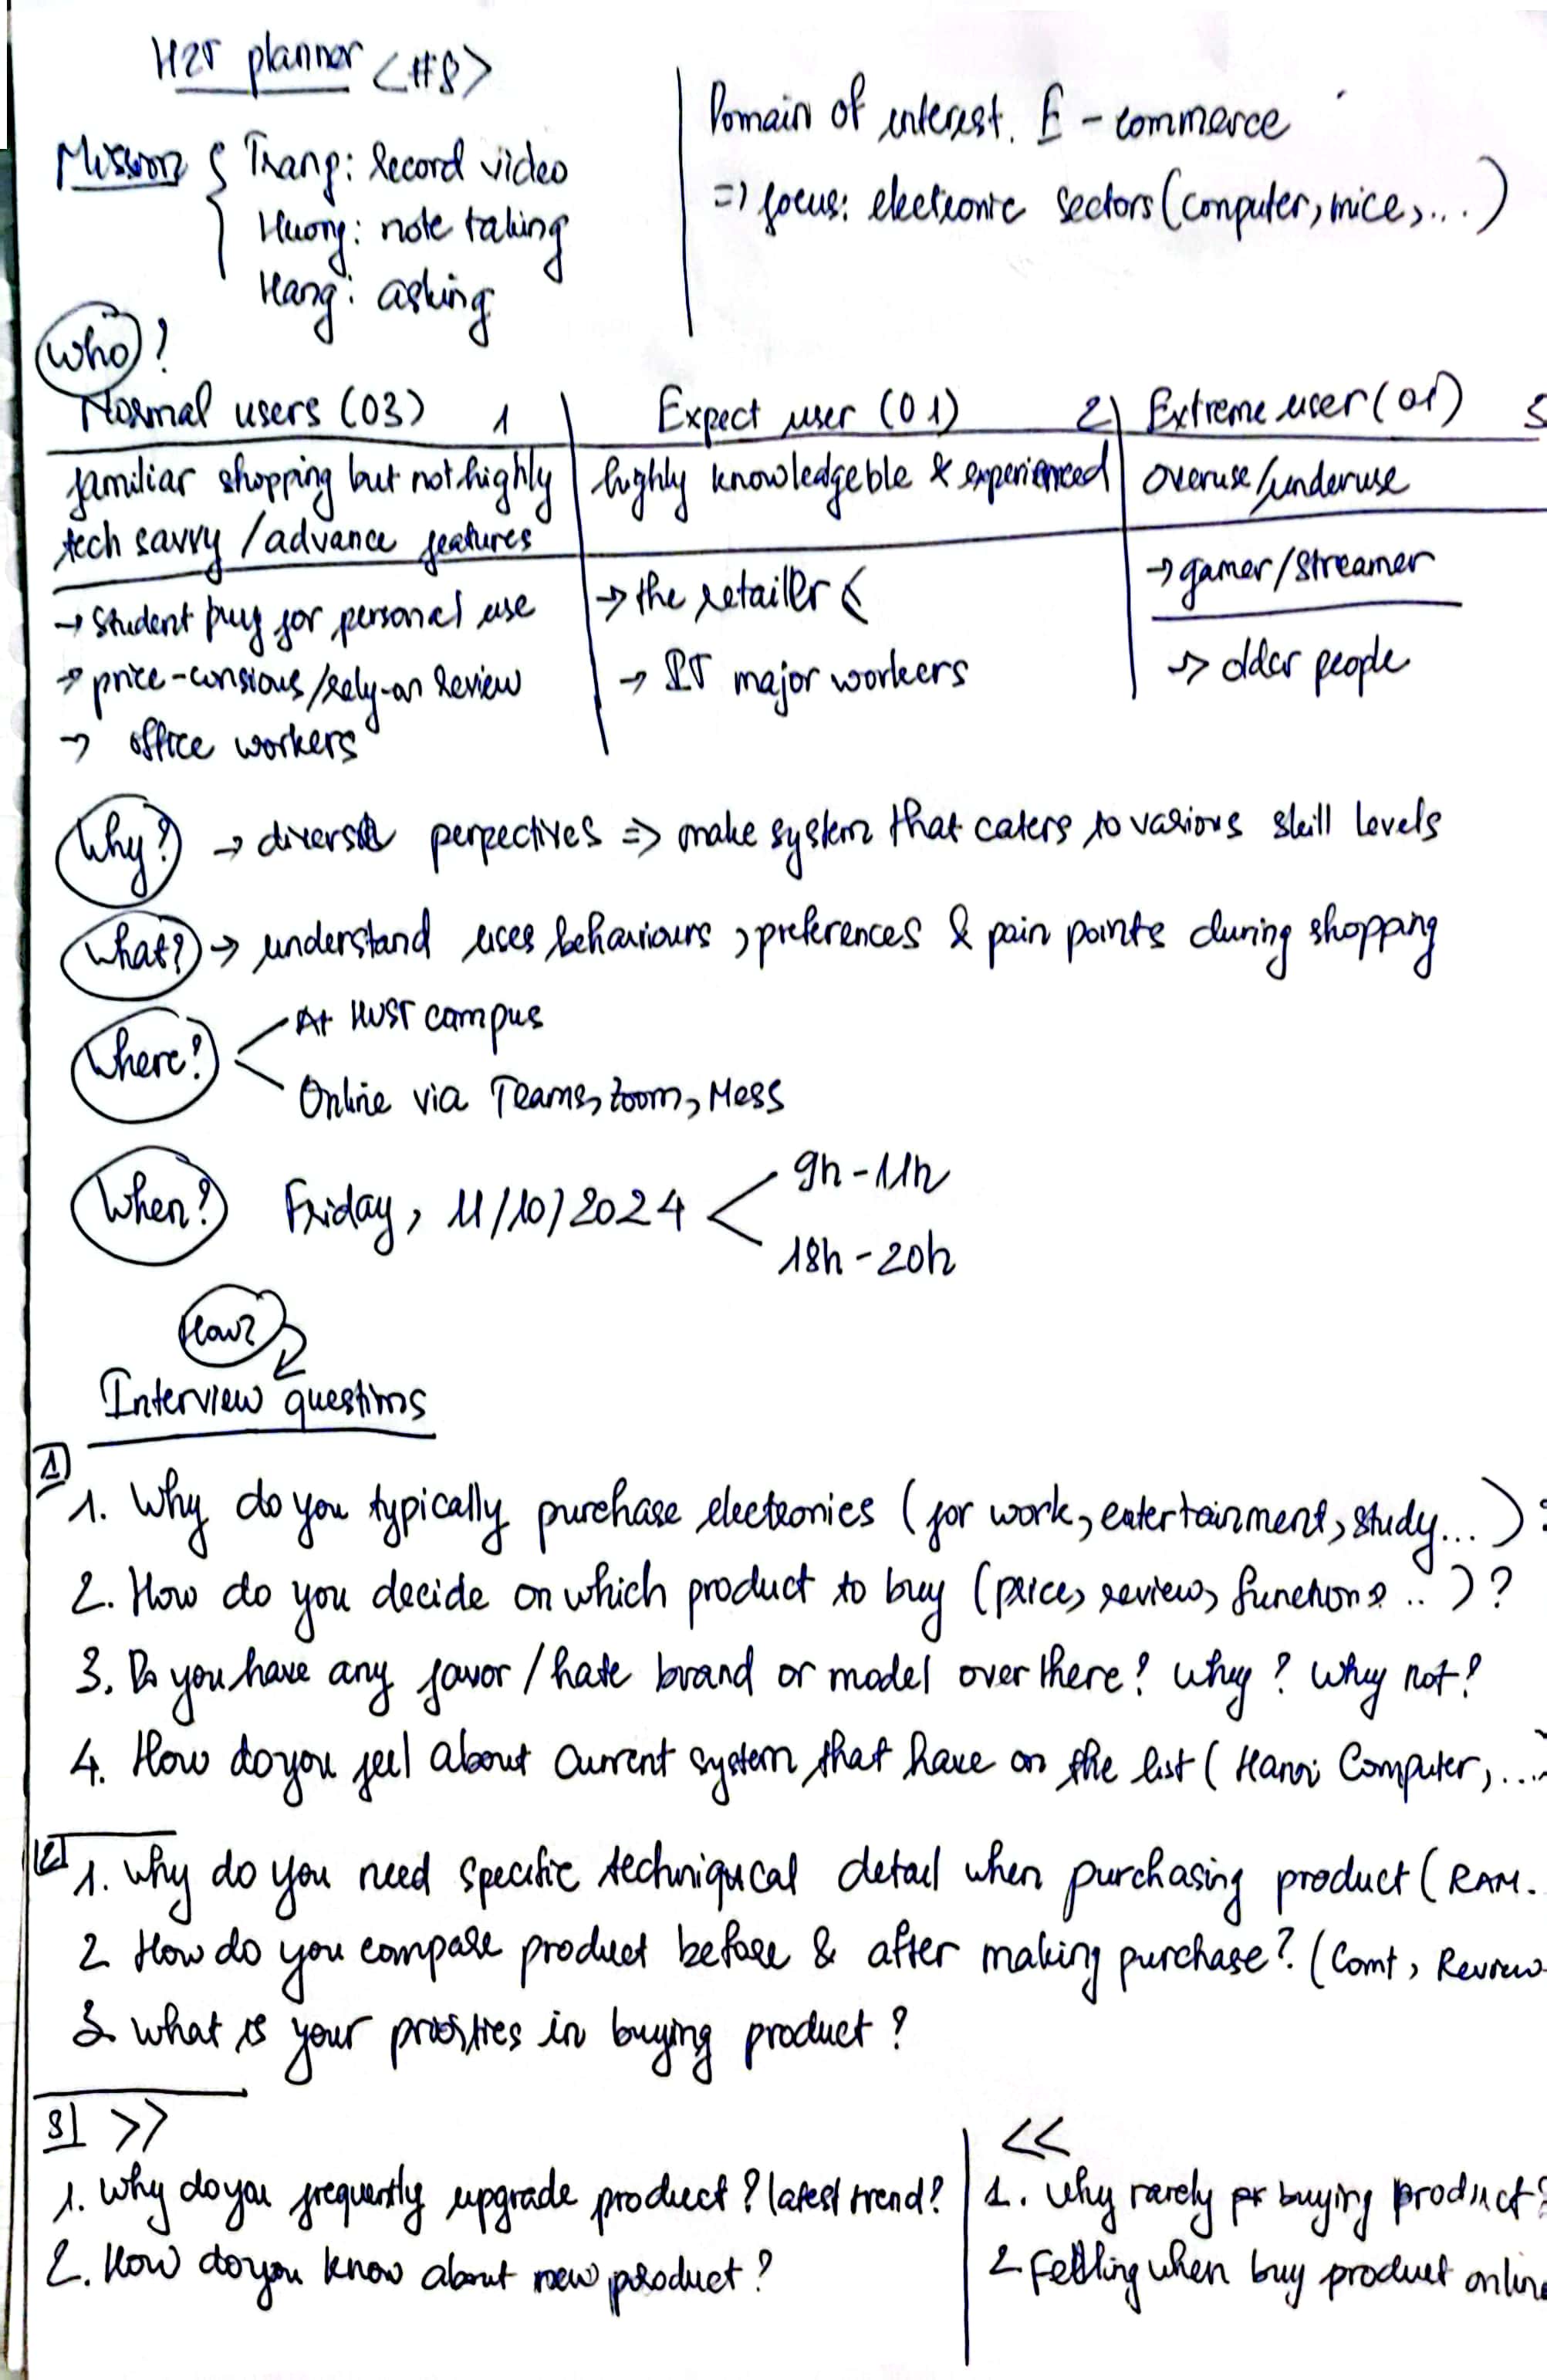 H2T planner <#8>
Mission { Trang: Record video
Huong: note taking
Hang: asking
Domain of interest. E-commerce
=> focus: electronic sectors (computer, mice, ...)
Who?
Normal users (03) 1
Expect user (01) 2
Extreme user (01) 3
familiar shopping but not highly
tech savvy / advance features
highly knowledgeble & experienced
overuse/underuse
-> Student buy for personal use
-> price-consious/rely-on Review
-> office workers
-> the retailer <
-> IT major workers
-> gamer/streamer
-> older people
Why? -> diverse perpectives => make system that caters to various skill levels
What? -> understand uses behaviours, preferences & pain points during shopping
Where? < At HUST campus
Online via Teams, Zoom, Mess
When? Friday, 11/10/2024 < 9h-11h
18h-20h
How?
Interview questions
1
1. Why do you typically purchase electronics (for work, entertainment, study...)?
2. How do you decide on which product to buy (price, review, functions ..)?
3. Do you have any favor/hate brand or model over there? Why? Why not?
4. How do you feel about current system that have on the list (Hanoi Computer, ...
2
1. Why do you need specific techniqucal detail when purchasing product (RAM.
2 How do you compare product before & after making purchase? (Comt, Review
3. What is your priorities in buying product?
3 >>
1. Why do you frequently upgrade product? latest trend?
2. How do you know about new product?
<<
1. Why rarely buying product?
2. Feelling when buy product online